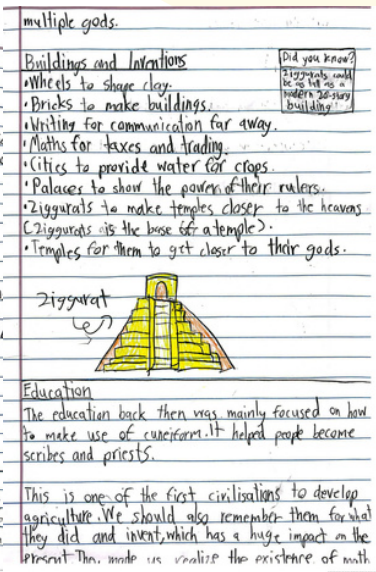 multiple gods.
Buildings and Inventions
Did you know?
Ziggurats could
be as tall as a
modern 20-story
building
•Wheels to shape clay.
•Bricks to make buildings.
•Writing for communication far away.
•Maths for taxes and trading.
•Cities to provide water for crops.
•Palaces to show the power of their rulers.
•Ziggurats to make temples closer to the heavens
(Ziggurats is the base of a temple).
•Temples for them to get closer to their gods.
Ziggurat
Education
The education back then was mainly focused on how
to make use of cuneiform. It helped people become
scribes and priests.
This is one of the first civilisations to develop
agriculture. We should also remember them for what
they did and invent, which has a huge impact on the
present. They made us realize the existence of math